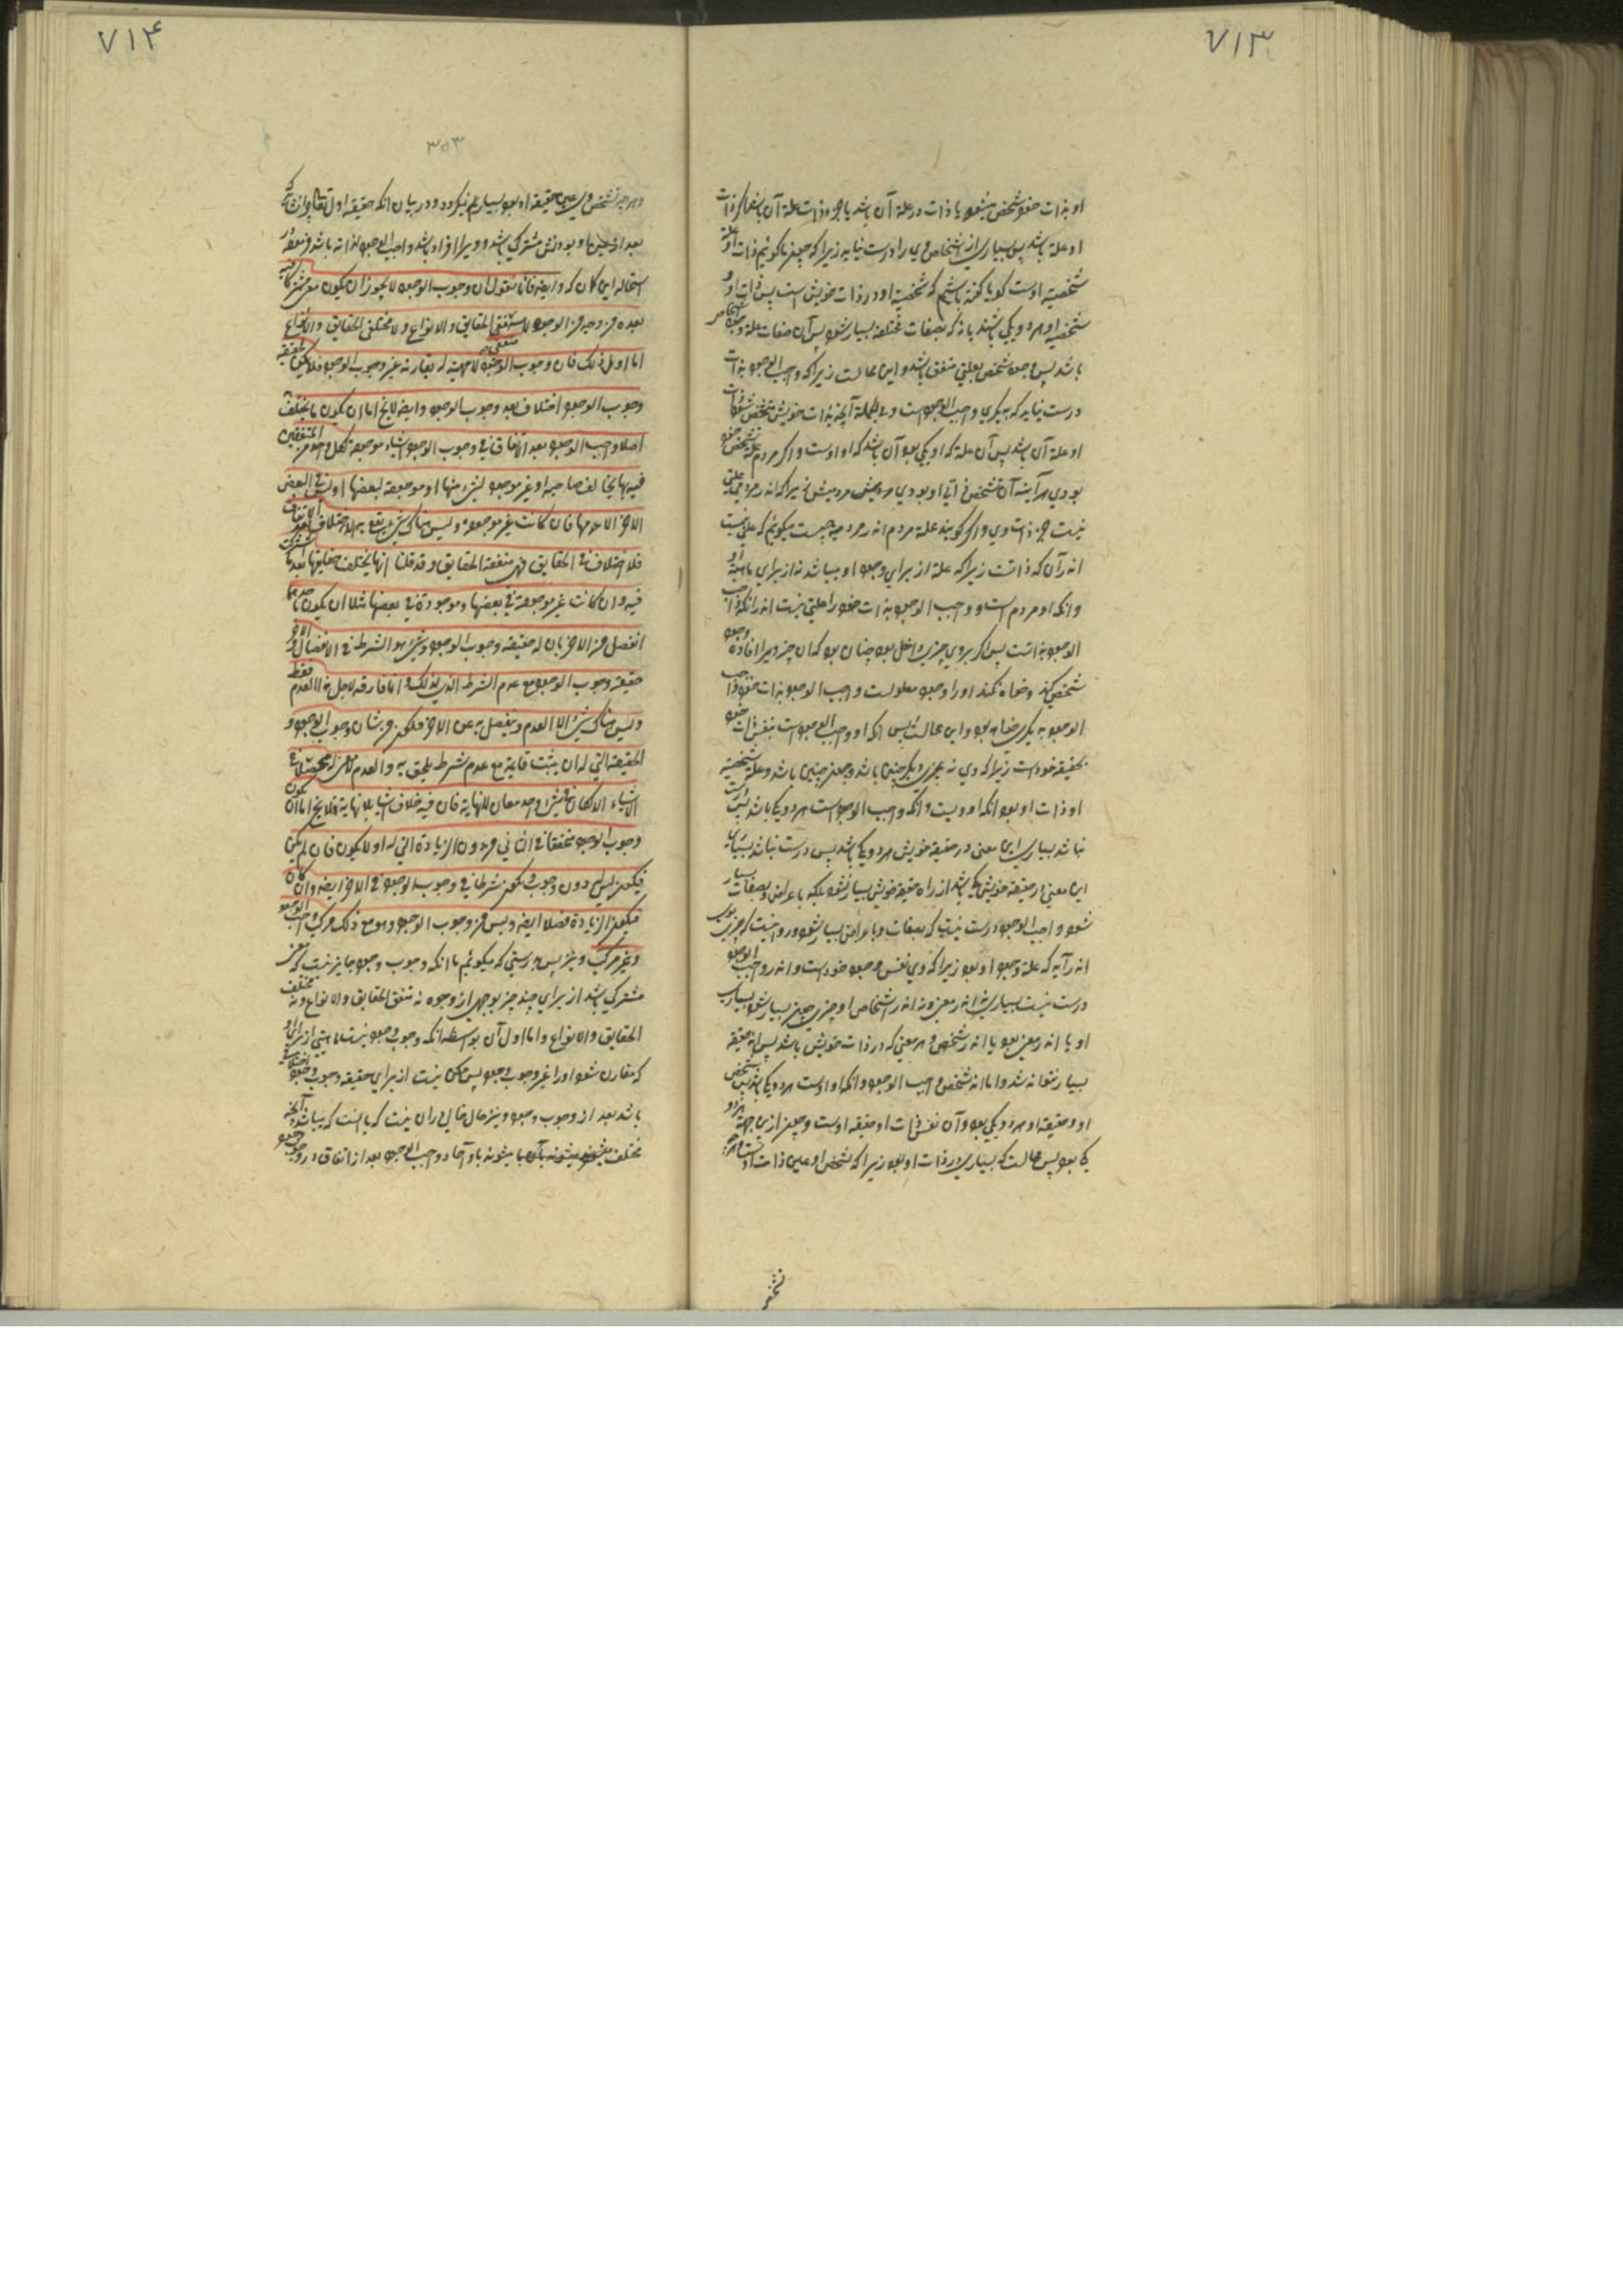 ۷۱۳
او بذات خود شخص میشود یا ذات در علة آن باشد یا جزء ذات علة آن باشد اگر ذات
او علة باشد پس بسیاری از اشخاص وی را درست نیاید زیرا که چون ما گوئیم ذات او علة
شخصیة اوست گویا گفته باشیم که شخصیة او در ذات خویش است پس ذات او و
شخصیة او هر دو یکی باشند یا نه که بصفات مختلفه بسیار شود پس آن صفات علة وجود
باشد پس وجود شخص بعلتی متفق باشد و این محالست زیرا که واجب الوجود بذات
درست نیاید که بدیگری واجب الوجودست و فی الجملة آنچه بذات خویش متشخص شود ذات
او علة آن باشد پس آن علة که او یکی بود آن باشد که او اوست و اگر مردم علة تشخص خود
بودی هر آینه آن تشخص ذاتی او بودی
نیست جز ذات وی و اگر گویند علة مردم اندر مردمیه چیست میگوئیم که علتی نیست
اندر آن که ذاتست زیرا که علة از برای وجود او میباشد نه از برای ماهیة او
و آنکه او مردم است و واجب الوجود بذات خود را علتی نیست اندر آنکه واجب
الوجود بذاتست پس اگر بر وی چیزی داخل بود چنان بود که آن چیز ویرا افاده وجود
شخص کند و خواه نکند او را وجود معلولست و واجب الوجود بذات خود واجب
الوجود بدیگری خواهد بود و این محالست پس آنکه او واجب الوجودست بنفس ذات خود
بحقیقة خودست زیرا که وی نه بچیزی دیگر چنین باشد و چون چنین باشد و علة شخصیة
او ذات او بود آنکه او ویست و آنکه واجب الوجودست هر دو یکی باشد پس درست
نباشد بسیاری این معنی در حقیقة خویش هر دو یکی باشد پس درست نباشد بسیاری
این معنی در حقیقة خویش یکی باشد از راه حقیقة خویش بسیار نشود بلکه باعراض و بصفات بسیار
شود و واجب الوجود درست نیست که بصفات و باعراض بسیار شود و روا نیست که چیزی بود
اندر آیه که علة وجود او بود زیرا که وی نفس وجود خودست و اندر واجب الوجود
درست نیست بسیاری نه اندر معنی و نه اندر اشخاص او چیزی چون بسیار شود بسیاری
او یا اندر معنی بود یا اندر شخص و هر معنی که در ذات خویش باشد پس اندر حقیقة
بسیار نتواند شد و اما اندر شخص واجب الوجود و آنکه او اوست هر دو یکی باشد پس شخص
او و حقیقة او هر دو یکی بود و آن نفس ذات او حقیقة اوست و چون ازین جهة هر دو
یکی بود پس محالست که بسیاری در ذات او بود زیرا که تشخص او عین ذات اوست و هر چه
تشخص
۷۱۴
۳۵۳
و هر چه تشخص وی عین حقیقة او بود بسیار نمیگردد و در بیان آنکه حقیقة اول تعالی روا نیست که
بعد از عین ما و بودنش مشترک باشد و ویرا افراد باشد و واجب الوجود لذاته باشد و معنی در
استحاله این کان که و ایضه فانا نقول ان وجوب الوجود لا یجوز ان یکون معنی مشترکا فیه
بعده من وجه من الوجوه لا متفقی الحقایق و الانواع و لا مختلفی الحقایق و الانواع
اما اول ذلک فان وجوب الوجود لا مهیة له یقارنه غیر وجوب الوجود فلا یمکن لحقیقة
وجوب الوجود اختلاف بعد وجوب الوجود و ایضه لایخ اما ان یکون ما یختلف
احاد واجب الوجود بعد الاتفاق فی وجوب الوجود اشیاء موجودة لکل واحد من المتفقین
فیه بها یخالف صاحبه او غیر موجود لشیء منها او موجودة لبعضها و لیس فی البعض
الاخر الا عدمها فان کانت غیر موجودة و لیس هناک شیء یقع به الاختلاف بعد الاتفاق
فلا اختلاف فی الحقایق فهی متفقة الحقایق و قد قلنا انها یختلف حقایقها بعد ما اشترکت
فیه و ان کانت غیر موجودة فی بعضها و موجودة فی بعضها مثلا ان یکون احدهما
انفصل من الاخر بان له حقیقة وجوب الوجود و شیء هو الشرط فی الانفصال و للاخر
حقیقة وجوب الوجود مع عدم الشرط الذی لذلک و انما فارقه لاجل هذا العدم فقط
و لیس هناک شیء الا العدم و ینفصل به عن الاخر فیکون من شان وجوب الوجود و
الحقیقة التی له ان یثبت قایمة مع عدم شرط یلحق به و العدم لا معنی له محصلا فی
الاشیاء و الا لکان فی شیء واحد معان بلا نهایة فان فیه خلاف اشیاء بلا نهایة فلایخ اما ان یکون
وجوب الوجود متحققا فی الثانی من دون الزیادة التی له او لا یکون فان لم یکن
فیکون لیس له دون وجوب الوجود و یکون شرطا فی وجوب الوجود فی الاخر ایضه و ان کان
فیکون الزیادة فضلا ایضه و لیس من وجوب الوجود و هو مع ذلک مرکب و واجب الوجود
غیر مرکب و نیز پس درستی که میگوئیم ما آنکه وجوب وجود جایز نیست که معنی
مشترک باشد از برای چند چیز بوجهی از وجوه نه متفق الحقایق و الانواع و نه مختلف
الحقایق و الانواع و اما اول آن بواسطه آنکه وجوب وجود نیست ماهیتی از برای او
که مقارن شود او را غیر وجوب وجود پس ممکن نیست از برای حقیقة وجوب وجود اختلافی
باشد بعد از وجوب وجود و نیز حال خالی از آن نیست که یا آنست که میباشد آنچه
مختلف میشوند بآن آحاد واجب الوجود بعد از اتفاق در وجوب وجود